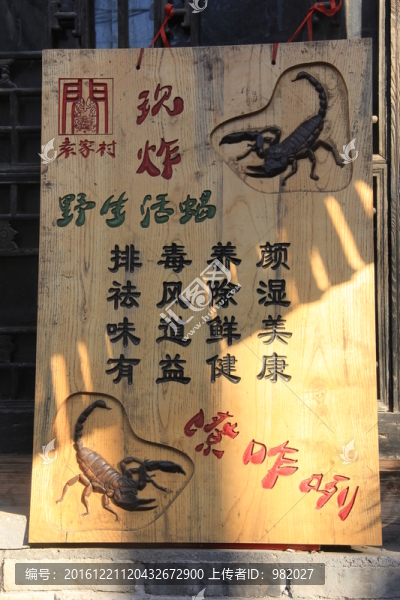 袁家村
现炸
野生活蝎
排毒养颜
祛风除湿
味道鲜美
有益健康
嘹咋咧
编号:20161221120432672900 上传者ID: 982027